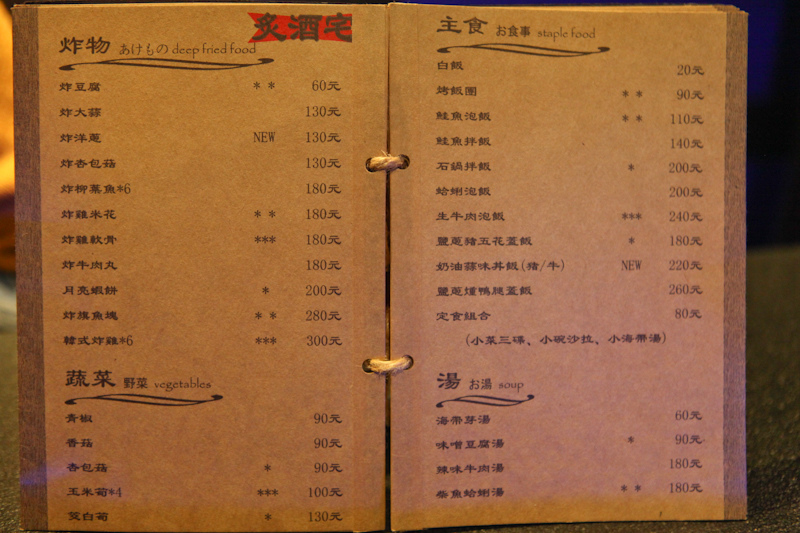 炙酒宅
炸物 あけもの deep fried food
炸豆腐 ** 60元
炸大蒜 130元
炸洋蔥 NEW 130元
炸杏包菇 130元
炸柳葉魚*6 180元
炸雞米花 ** 180元
炸雞軟骨 *** 180元
炸牛肉丸 180元
月亮蝦餅 * 200元
炸旗魚塊 ** 280元
韓式炸雞*6 *** 300元
蔬菜 野菜 vegetables
青椒 90元
香菇 90元
杏包菇 * 90元
玉米筍*4 *** 100元
筊白筍 * 130元
主食 お食事 staple food
白飯 20元
烤飯團 ** 90元
鮭魚泡飯 ** 110元
鮭魚拌飯 140元
石鍋拌飯 * 200元
蛤蜊泡飯 200元
生牛肉泡飯 *** 240元
鹽蔥豬五花蓋飯 * 180元
奶油蒜味丼飯(豬/牛) NEW 220元
鹽蔥燻鴨腿蓋飯 260元
定食組合 80元
(小菜三碟、小碗沙拉、小海帶湯)
湯 お湯 soup
海帶芽湯 60元
味噌豆腐湯 * 90元
辣味牛肉湯 180元
柴魚蛤蜊湯 ** 180元